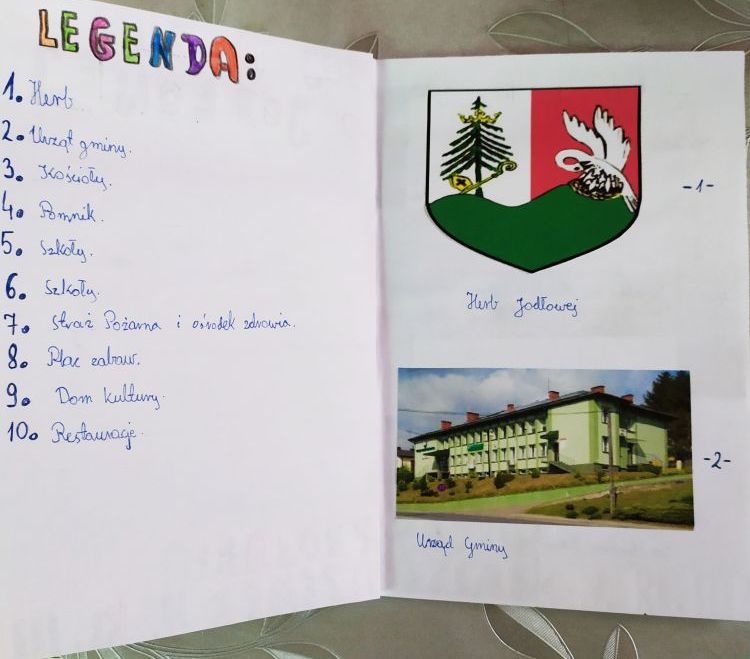 LEGENDA:
1. Herb
2. Urząt gminy.
3. Kościoły.
4. Pomnik.
5. Szkoły.
6. Szkoły.
7. Straż Pożarna i ośrodek zdrowia.
8. Plac zabaw.
9. Dom kultury.
10. Restauracje.
-1-
Herb Jodłowej
-2-
Urząd Gminy